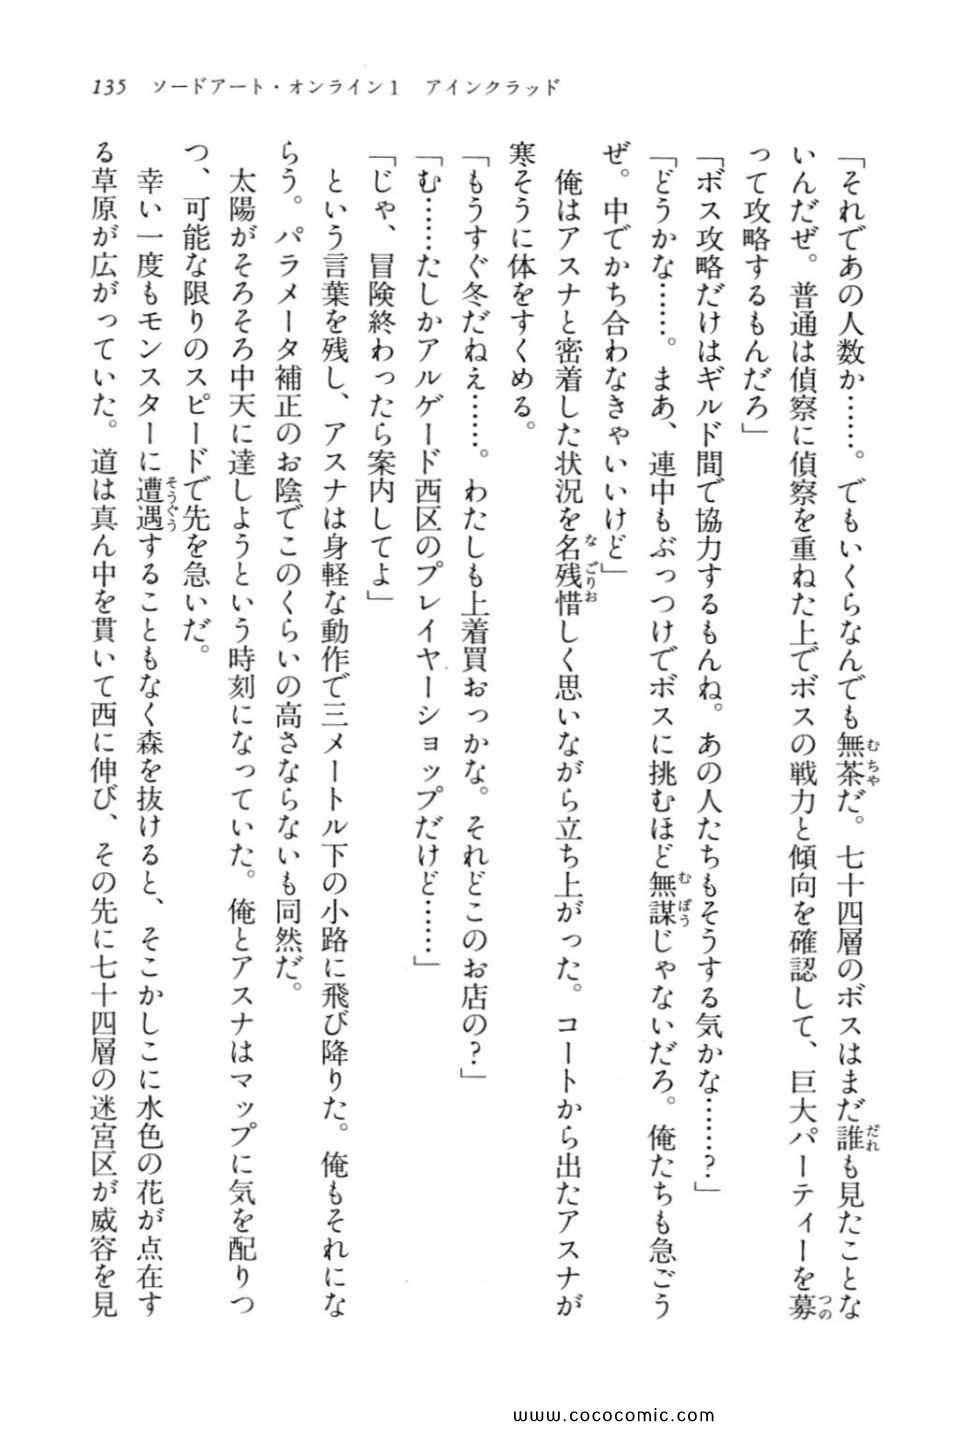 135 ソードアート・オンライン1 アインクラッド
「それであの人数か……。でもいくらなんでも無茶だ。七十四層のボスはまだ誰も見たことな
いんだぜ。普通は偵察に偵察を重ねた上でボスの戦力と傾向を確認して、巨大パーティーを募
って攻略するもんだろ」
「ボス攻略だけはギルド間で協力するもんね。あの人たちもそうする気かな……？」
「どうかな……。まあ、連中もぶっつけでボスに挑むほど無謀じゃないだろ。俺たちも急ごう
ぜ。中でかち合わなきゃいいけど」
俺はアスナと密着した状況を名残惜しく思いながら立ち上がった。コートから出たアスナが
寒そうに体をすくめる。
「もうすぐ冬だねえ……。わたしも上着買おっかな。それどこのお店の？」
「む……たしかアルゲード西区のプレイヤーショップだけど……」
「じゃ、冒険終わったら案内してよ」
という言葉を残し、アスナは身軽な動作で三メートル下の小路に飛び降りた。俺もそれにな
らう。パラメータ補正のお陰でこのくらいの高さならないも同然だ。
太陽がそろそろ中天に達しようという時刻になっていた。俺とアスナはマップに気を配りつ
つ、可能な限りのスピードで先を急いだ。
幸い一度もモンスターに遭遇することもなく森を抜けると、そこかしこに水色の花が点在す
る草原が広がっていた。道は真ん中を貫いて西に伸び、その先に七十四層の迷宮区が威容を見
www.cococomic.com